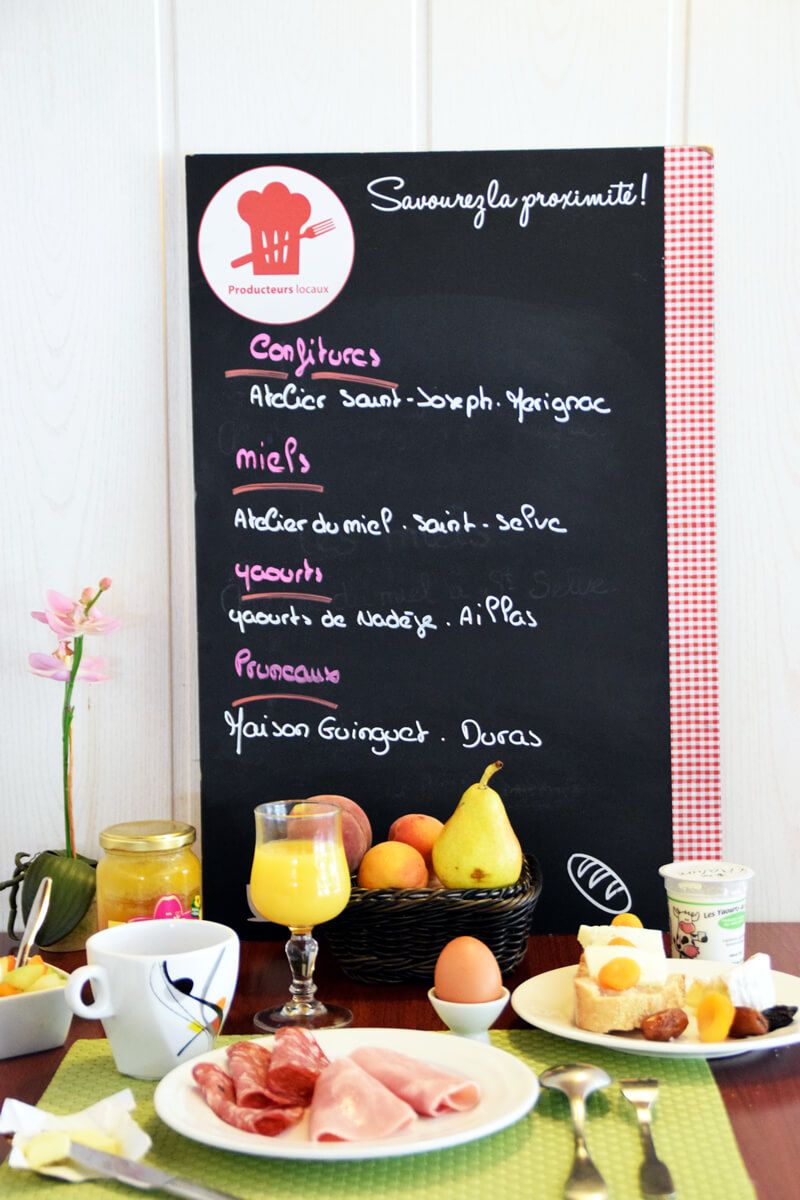 Savourez la proximité!
Producteurs locaux
Confitures
Atelier Saint-Joseph. Merignac
miels
Atelier du miel. Saint-Selve
yaourts
yaourts de Nadège. Aillas
Pruneaux
Maison Guinguet. Duras
Les Yaourts